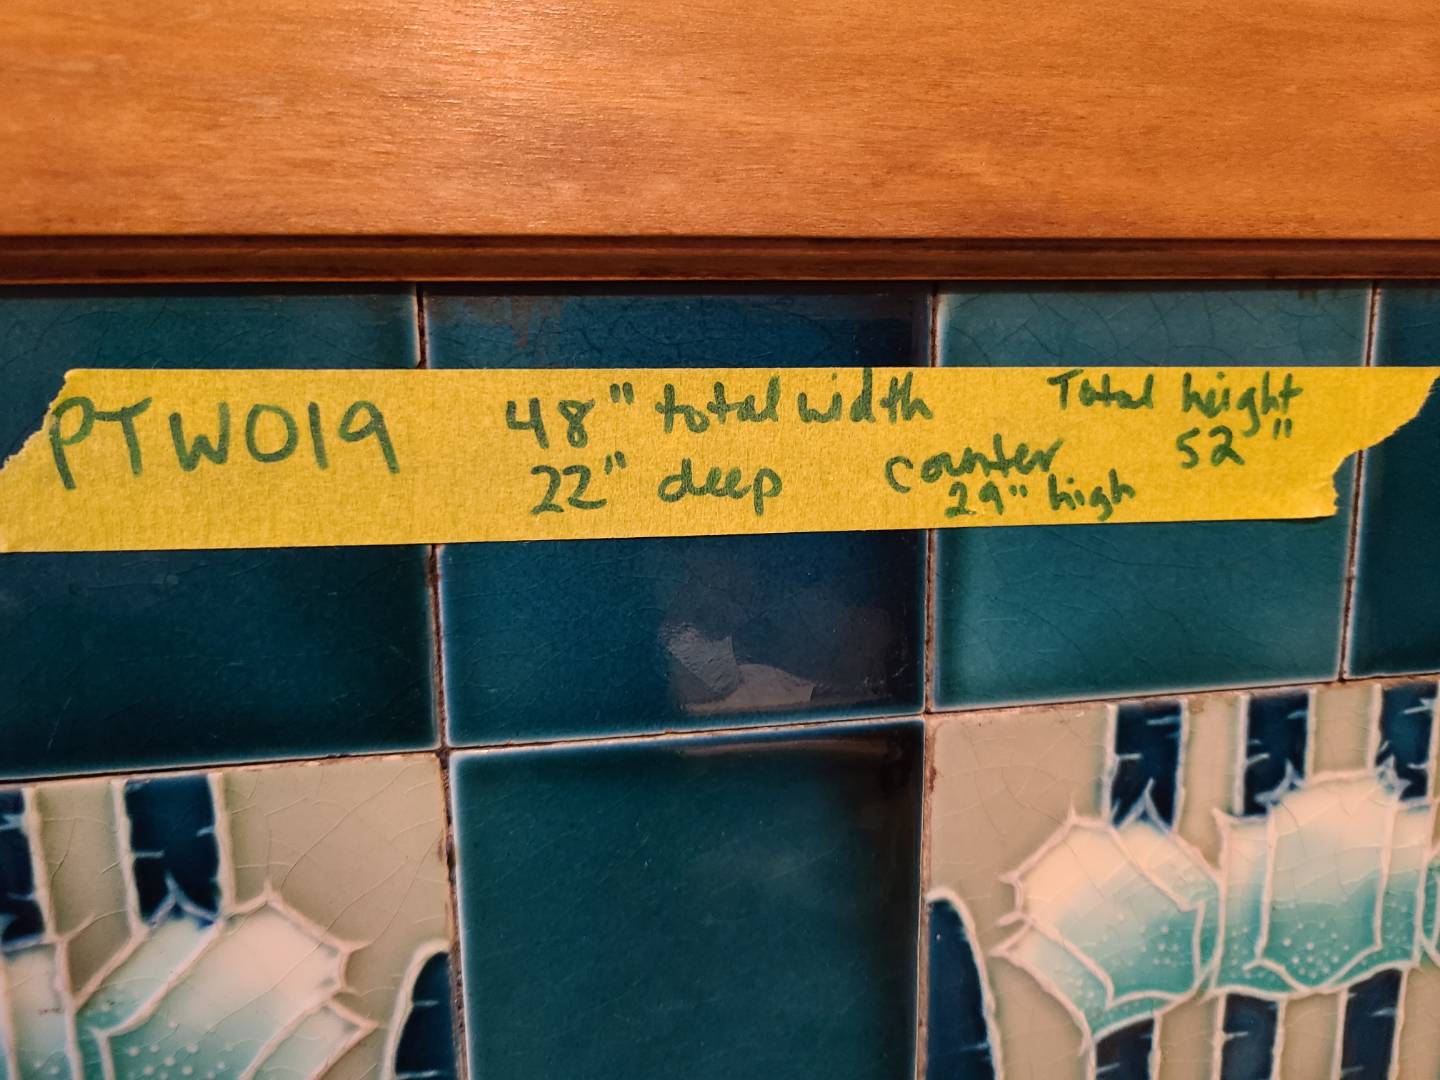 PTW019
48" total width
22" deep
counter
29" high
Total height
52"